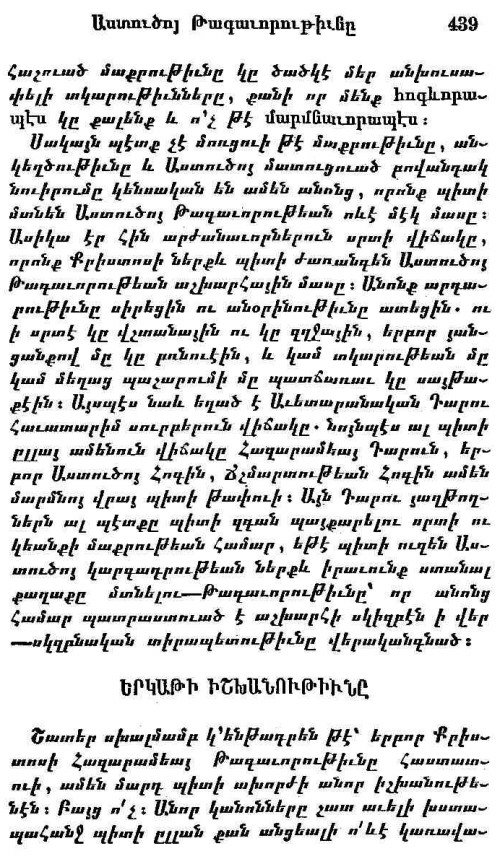 Աստուծոյ Թագաւորութիւնը 439
Հաշուած մաքրութիւնը կը ծածկէ մեր անխուսա-
փելի տկարութիւնները, քանի որ մենք հոգևորա-
պէս կը քալենք և ո՛չ թէ մարմնաւորապէս։
Սակայն պէտք չէ մոռցուի թէ մաքրութիւնը, ան-
կեղծութիւնը և Աստուծոյ մատուցուած բովանդակ
նուիրումը կենսական են ամեն անոնց, որոնք պիտի
մտնեն Աստուծոյ Թագաւորութեան ոևէ մէկ մասը։
Ասիկա էր Հին արժանաւորներուն սրտի վիճակը,
որոնք Քրիստոսի ներքև պիտի ժառանգեն Աստուծոյ
Թագաւորութեան աշխարհային մասը։ Անոնք արդա-
րութիւնը սիրեցին ու անօրինութիւնը ատեցին. ու
ի սրտէ կը վշտանային ու կը զղջային, երբոր յան-
ցանքով մը կը բռնուէին, և կամ տկարութեան մը
կամ մեղաց պաշարումի մը պատճառաւ կը սայթա-
քէին։ Այսպէս նաև եղած է Աւետարանական Դարու
Հաւատարիմ սուրբերուն վիճակը. նոյնպէս ալ պիտի
ըլլայ ամենուն վիճակը Հազարամեայ Դարուն, եր-
բոր Աստուծոյ Հոգին, Ճշմարտութեան Հոգին ամեն
մարմնոյ վրայ պիտի թափուի։ Այն Դարու յաղթող-
ներն ալ պէտքը պիտի զգան պայքարելու սրտի ու
կեանքի մաքրութեան համար, եթէ պիտի ուզեն Աս-
տուծոյ կարգադրութեան ներքև իրաւունք ստանալ
քաղաքը մտնելու—Թագաւորութիւնը՝ որ անոնց
համար պատրաստուած է աշխարհի սկիզբէն ի վեր
—սկզբնական տիրապետութիւնը վերականգնած։
ԵՐԿԱԹԻ ԻՇԽԱՆՈՒԹԻՒՆԸ
Շատեր սխալմամբ կ՚ենթադրեն թէ՝ երբոր Քրիս-
տոսի Հազարամեայ Թագաւորութիւնը հաստատ-
ուի, ամեն մարդ պիտի ախորժի անոր իշխանութե-
նէն։ Բայց ո՛չ։ Անոր կանոնները շատ աւելի խստա-
պահանջ պիտի ըլլան քան անցեալի ո՛ևէ կառավա-